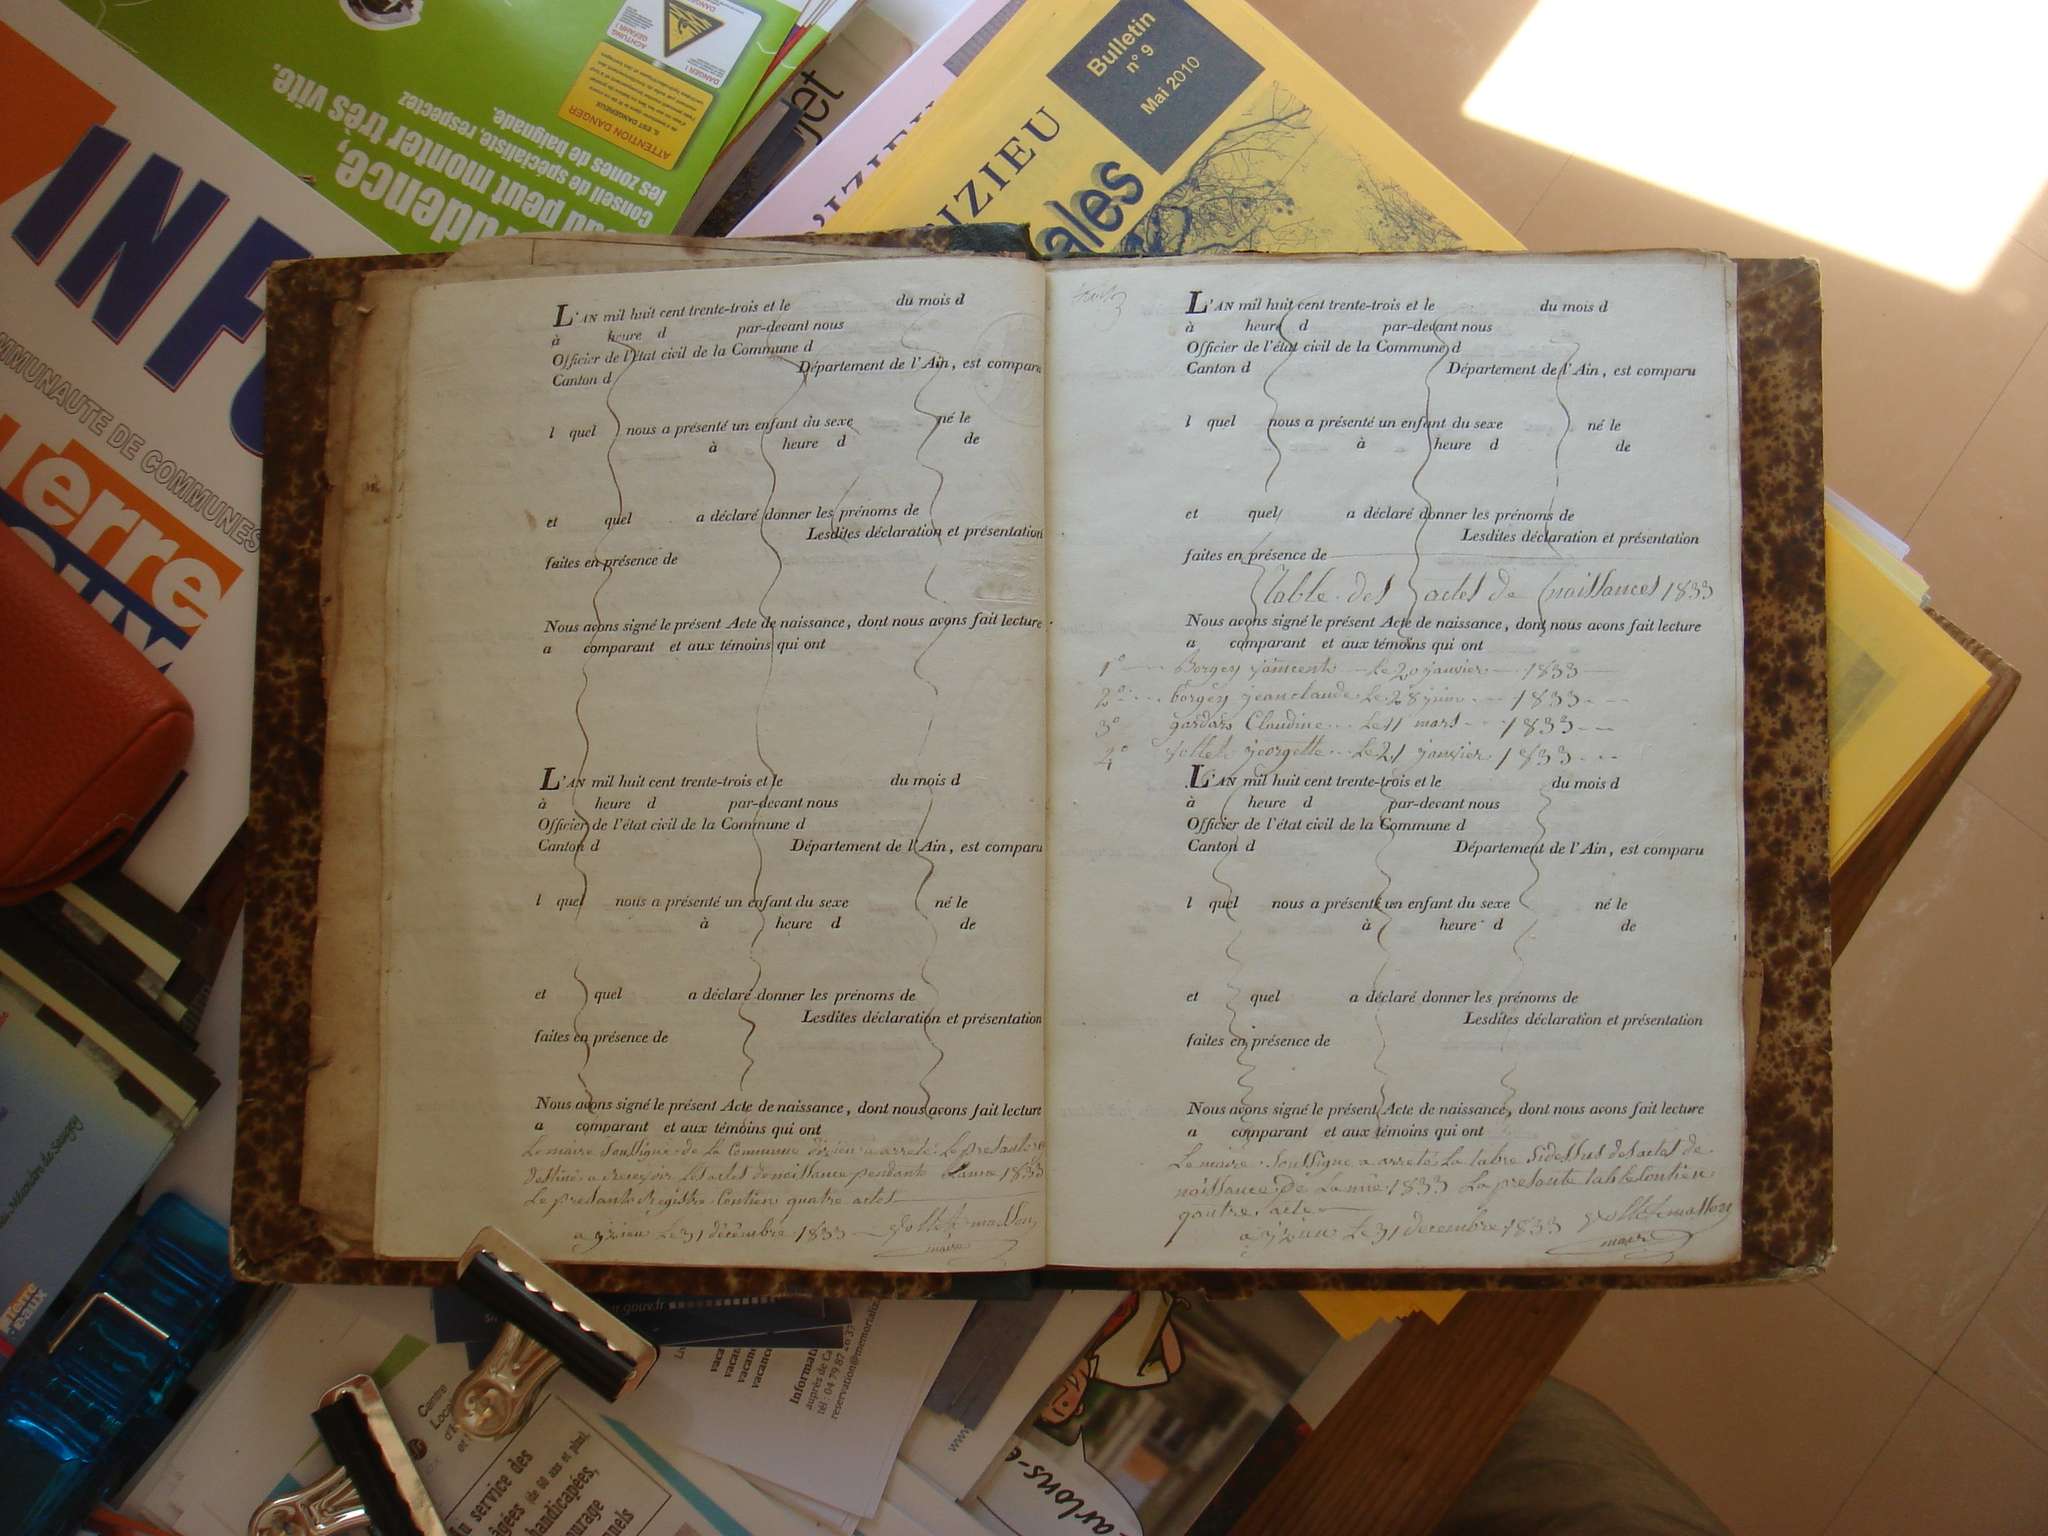 Bulletin
n° 9
Mai 2010
IZIEU
ales
jet
INFO
COMMUNAUTE DE COMMUNES
Terre
rudence,
eau peut monter très vite.
Conseil de spécialiste, respectez
les zones de baignade.
ATTENTION DANGER
IL EST DANGEREUX
DANGER !
ACHTUNG
GEFAHR !
L'AN mil huit cent trente-trois et le du mois d
à heure d par-devant nous
Officier de l'état civil de la Commune d
Canton d Département de l'Ain, est comparu
l quel nous a présenté un enfant du sexe né le
à heure d de
et quel a déclaré donner les prénoms de
Lesdites déclaration et présentation
faites en présence de
Nous avons signé le présent Acte de naissance, dont nous avons fait lecture
a comparant et aux témoins qui ont
L'AN mil huit cent trente-trois et le du mois d
à heure d par-devant nous
Officier de l'état civil de la Commune d
Canton d Département de l'Ain, est comparu
l quel nous a présenté un enfant du sexe né le
à heure d de
et quel a déclaré donner les prénoms de
Lesdites déclaration et présentation
faites en présence de
Nous avons signé le présent Acte de naissance, dont nous avons fait lecture
a comparant et aux témoins qui ont
Le maire soussigné de la Commune a arreté le presant
destiné a recevoir les actes de naissance pendant 1833
Le presant Registre Contien quatre actes
a yzieu le 31 décembre 1833
maire
L'AN mil huit cent trente-trois et le du mois d
à heure d par-devant nous
Officier de l'état civil de la Commune d
Canton d Département de l'Ain, est comparu
l quel nous a présenté un enfant du sexe né le
à heure d de
et quel a déclaré donner les prénoms de
Lesdites déclaration et présentation
faites en présence de
Table des actes de naissances 1833
Nous avons signé le présent Acte de naissance, dont nous avons fait lecture
a comparant et aux témoins qui ont
1° Borgey le 20 janvier 1833
2° borgey jean claude le 28 juin 1833
3° Claudine le 11 mars 1833
4° jeorgette le 21 janvier 1833
L'AN mil huit cent trente-trois et le du mois d
à heure d par-devant nous
Officier de l'état civil de la Commune d
Canton d Département de l'Ain, est comparu
l quel nous a présenté un enfant du sexe né le
à heure d de
et quel a déclaré donner les prénoms de
Lesdites déclaration et présentation
faites en présence de
Nous avons signé le présent Acte de naissance, dont nous avons fait lecture
a comparant et aux témoins qui ont
Le maire soussigne a arreté la table sidessus des actes de
naissance de 1833 La presante table contien
quatre acte
a yzieu le 31 decembre 1833
maire
gouv.fr
Informati
auprès de Ca
tél : 04 79 87 20 37
reservation@memorializ
www.
Centre
Loca
d'I
et
u service des
âgées (de 60 ans et plus),
handicapées,
arlons-e